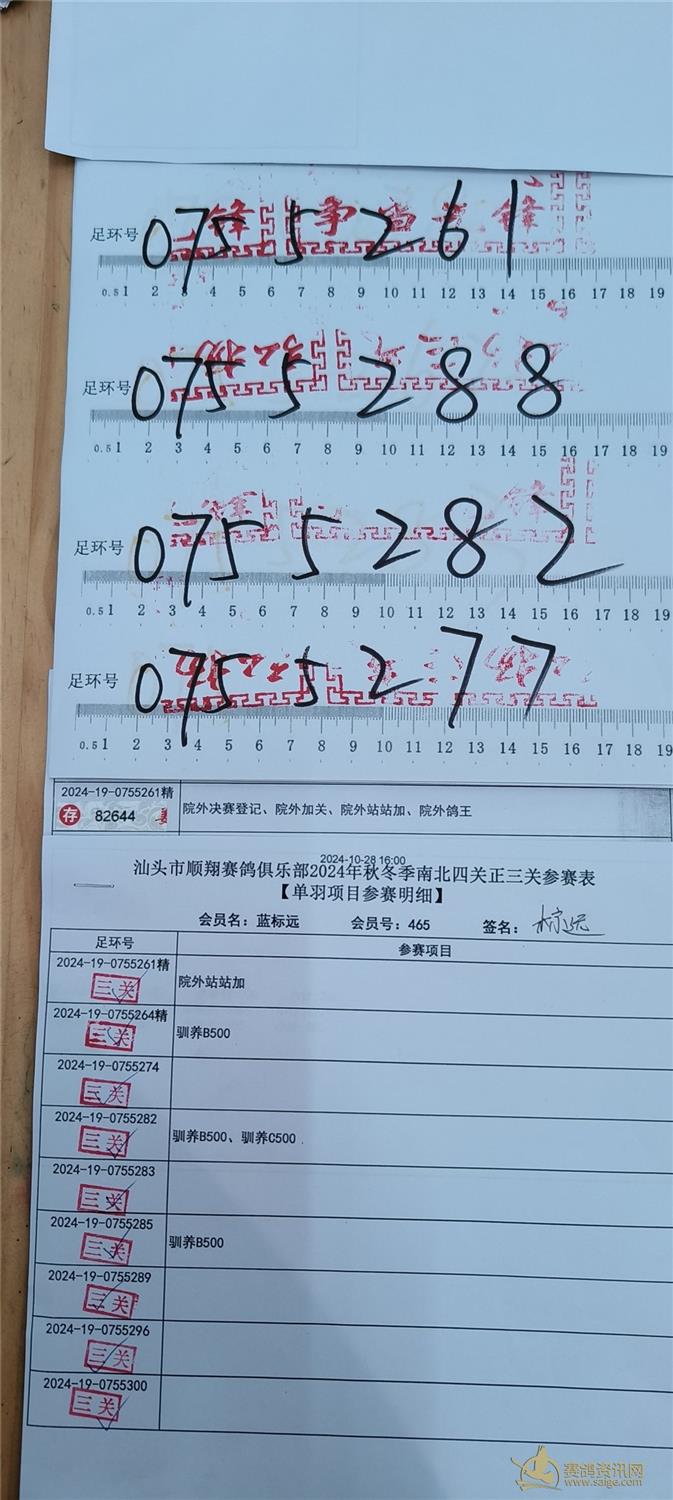 足环号 0755261
0.5 1 2 3 4 5 6 7 8 9 10 11 12 13 14 15 16 17 18 19
足环号 0755288
0.5 1 2 3 4 5 6 7 8 9 10 11 12 13 14 15 16 17 18 19
足环号 0755282
0.5 1 2 3 4 5 6 7 8 9 10 11 12 13 14 15 16 17 18 19
足环号 0755277
0.5 1 2 3 4 5 6 7 8 9 10 11 12 13 14 15 16 17 18 19
2024-19-0755261精 院外决赛登记、院外加关、院外站站加、院外鸽王
存 82644
2024-10-28 16:00
汕头市顺翔赛鸽俱乐部2024年秋冬季南北四关正三关参赛表
【单羽项目参赛明细】
会员名：蓝标远 会员号：465 签名：
足环号 参赛项目
2024-19-0755261精 院外站站加
三关
2024-19-0755264精 驯养B500
三关
2024-19-0755274
三关
2024-19-0755282 驯养B500、驯养C500
三关
2024-19-0755283
三关
2024-19-0755285 驯养B500
三关
2024-19-0755289
三关
2024-19-0755296
三关
2024-19-0755300
三关
赛鸽资讯网
www.saige.com